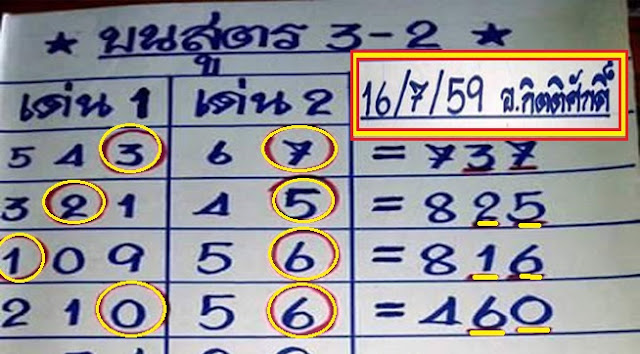 ★ บนสูตร 3-2 ★
เด่น 1 เด่น 2 16/7/59 อ.กิตติศักดิ์
5 4 3 6 7 = 737
3 2 1 4 5 = 825
1 0 9 5 6 = 816
2 1 0 5 6 = 460